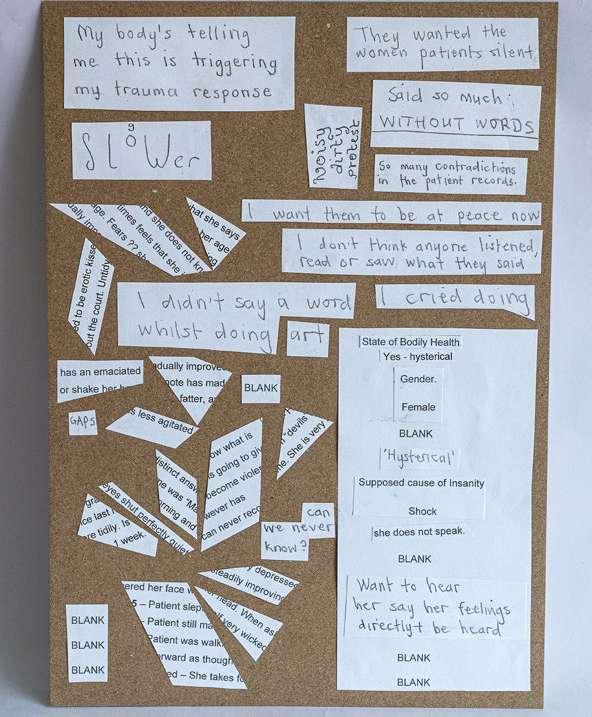 My body's telling
me this is triggering
my trauma response
They wanted the
women patients silent
Said so much:
WITHOUT WORDS
SLOWer
go
Noisy
dirty
protest
So many contradictions
in the patient records.
I want them to be at peace now
I don't think anyone listened,
read or saw what they said
hat she says
her age
nd she does not kn
times feels that she
age. Fears ??
ually imp
ed to be erotic kisse
out the court. Untidy
I didn't say a word
whilst doing art
I cried doing
has an emaciated
or shake her
adually improve
note has mad
fatter, a
BLANK
GAPS
s less agitated
"devils
ne. She is very
ow what is
s going to gi
become viole
wever has
can never reco
distinct answ
me was "M
orning and
eyes shut perfectly quiet
gra
ice last
re tidily. Is
1 week.
can
we never
know?
y depressed
teadily improving
head. When as
very wicked
ered her face w
5 – Patient slep
- Patient still ma
Patient was walk
orward as though
ed – She takes fo
BLANK
BLANK
BLANK
State of Bodily Health
Yes - hysterical
Gender.
Female
BLANK
'Hysterical'
Supposed cause of Insanity
Shock
she does not speak.
BLANK
Want to hear
her say her feelings
directly + be heard
BLANK
BLANK